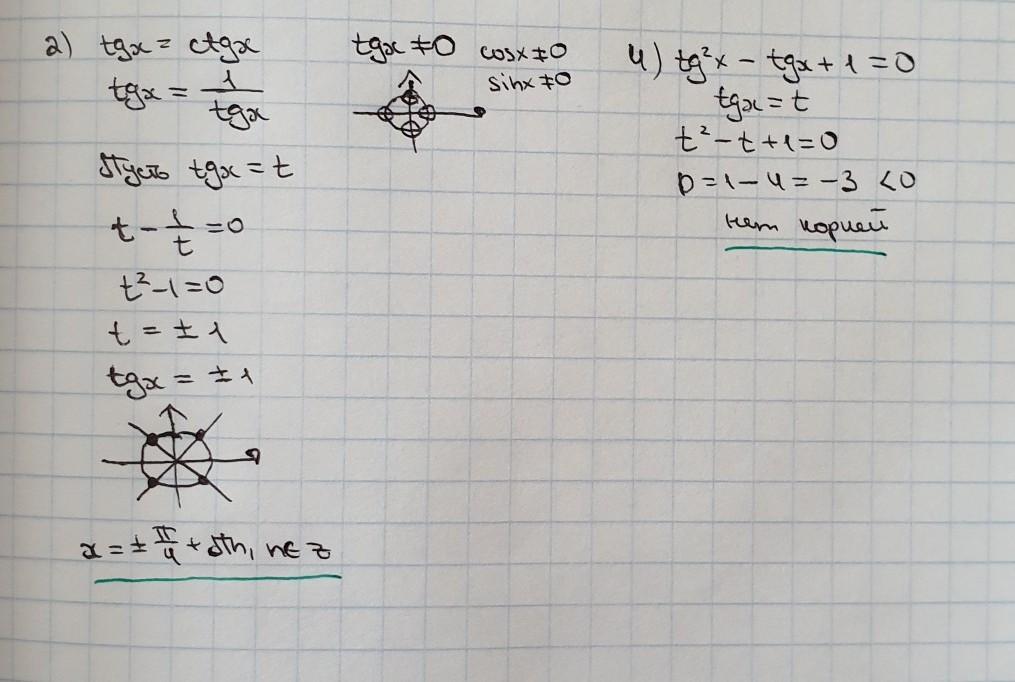 2) tgx = ctgx
tgx ≠ 0 cosx ≠ 0
sinx ≠ 0
tgx = 1/tgx
Пусть tgx = t
t - 1/t = 0
t² - 1 = 0
t = ± 1
tgx = ± 1
x = ± π/4 + πn, n ∈ z
4) tg²x - tgx + 1 = 0
tgx = t
t² - t + 1 = 0
D = 1 - 4 = -3 < 0
нет корней